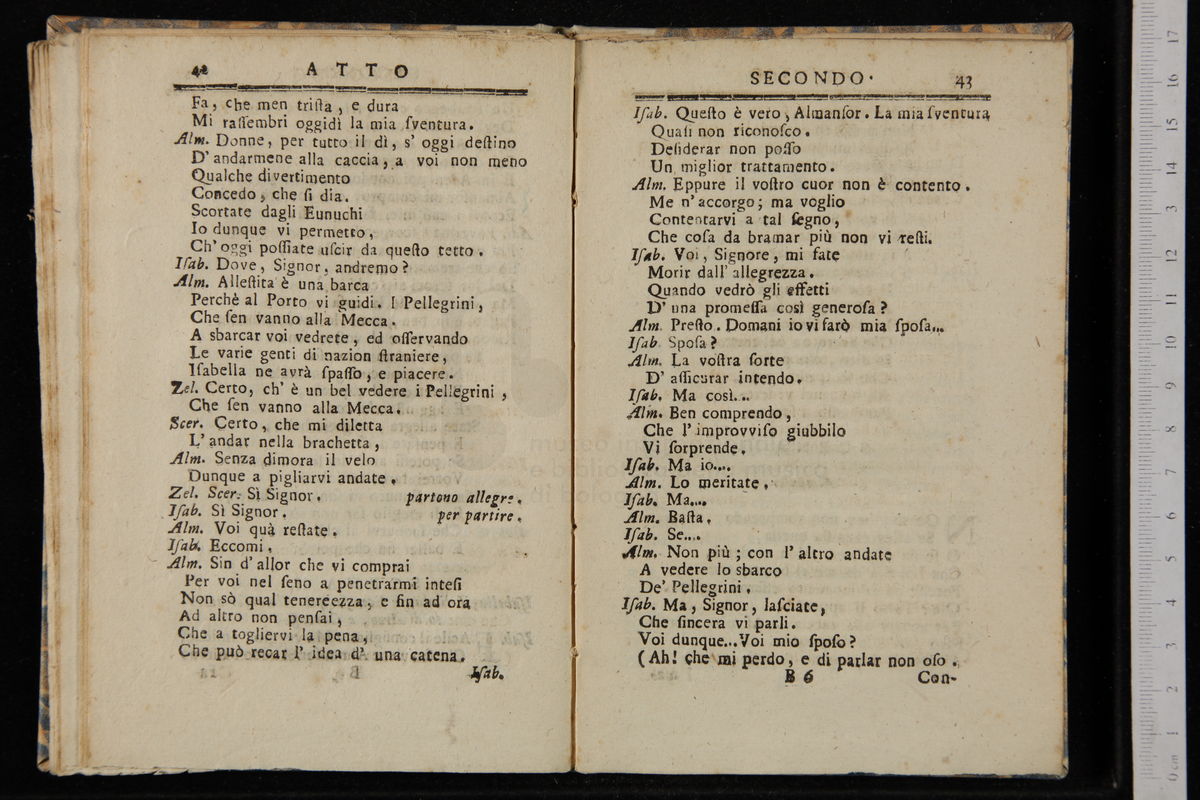 42 ATTO
Fa, che men triſta, e dura
Mi raſſembri oggidì la mia ſventura.
Alm. Donne, per tutto il dì, s' oggi deſtino
D' andarmene alla caccia, a voi non meno
Qualche divertimento
Concedo, che ſi dia.
Scortate dagli Eunuchi
Io dunque vi permetto,
Ch' oggi poſſiate uſcir da queſto tetto.
Iſab. Dove, Signor, andremo?
Alm. Alleſtita è una barca
Perchè al Porto vi guidi. I Pellegrini,
Che ſen vanno alla Mecca.
A sbarcar voi vedrete, ed oſſervando
Le varie genti di nazion ſtraniere,
Iſabella ne avrà ſpaſſo, e piacere.
Zel. Certo, ch' è un bel vedere i Pellegrini,
Che ſen vanno alla Mecca.
Scer. Certo, che mi diletta
L' andar nella brachetta,
Alm. Senza dimora il velo
Dunque a pigliarvi andate.
Zel. Scer. Sì Signor. partono allegre.
Iſab. Sì Signor. per partire.
Alm. Voi quà reſtate.
Iſab. Eccomi.
Alm. Sin d' allor che vi comprai
Per voi nel ſeno a penetrarmi inteſi
Non sò qual tenereezza, e ſin ad ora
Ad altro non penſai,
Che a togliervi la pena,
Che può recar l' idea d' una catena.
Iſab.
SECONDO. 43
Iſab. Queſto è vero, Almanſor. La mia ſventura
Quaſi non riconoſco.
Deſiderar non poſſo
Un miglior trattamento.
Alm. Eppure il voſtro cuor non è contento.
Me n' accorgo; ma voglio
Contentarvi a tal ſegno,
Che coſa da bramar più non vi reſti.
Iſab. Voi, Signore, mi fate
Morir dall' allegrezza.
Quando vedrò gli effetti
D' una promeſſa così generoſa?
Alm. Preſto. Domani io vi farò mia ſpoſa...
Iſab. Spoſa?
Alm. La voſtra ſorte
D' aſſicurar intendo.
Iſab. Ma così...
Alm. Ben comprendo,
Che l' improvviſo giubbilo
Vi ſorprende.
Iſab. Ma io....
Alm. Lo meritate.
Iſab. Ma....
Alm. Baſta.
Iſab. Se....
Alm. Non più; con l' altro andate
A vedere lo sbarco
De' Pellegrini.
Iſab. Ma, Signor, laſciate,
Che ſincera vi parli.
Voi dunque...Voi mio ſpoſo?
(Ah! che mi perdo, e di parlar non oſo.
B 6 Con-